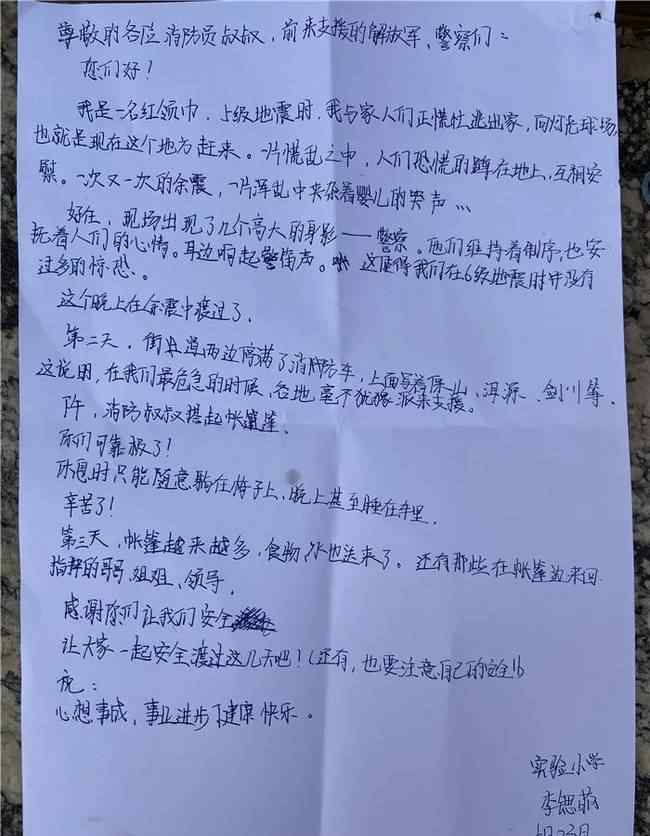 尊敬的各位消防员叔叔，前来支援的解放军、警察们：
您们好！
我是一名红领巾，5级地震时，我与家人们正慌忙逃出家，向灯光球场，
也就是现在这个地方赶来。一片慌乱之中，人们恐慌的蹲在地上，互相安
慰。一次又一次的余震，一片浑乱中夹杂着婴儿的哭声…
好在，现场出现了几个高大的身影——警察。他们维持着制序，也安
抚着人们的心情。耳边响起警笛声。这使得我们在6级地震时并没有
过多的惊恐。
这个晚上在余震中渡过了。
第二天，街道两边停满了消防车，上面写着保山、洱源、剑川等，
这说明，在我们最危急的时候，各地毫不犹豫派来支援。
下午，消防叔叔搭起帐篷。
你们可靠极了！
休息时只能随意躺在椅子上，晚上甚至睡在车里。
辛苦了！
第三天，帐篷越来越多，食物、水也送来了。还有那些在帐篷边来回
指挥的哥哥、姐姐、领导。
感谢你们让我们安全
让大家一起安全渡过这几天吧！（还有，也要注意自己的安全！）
祝：
心想事成，事业进步，健康快乐。
实验小学
李
月23日